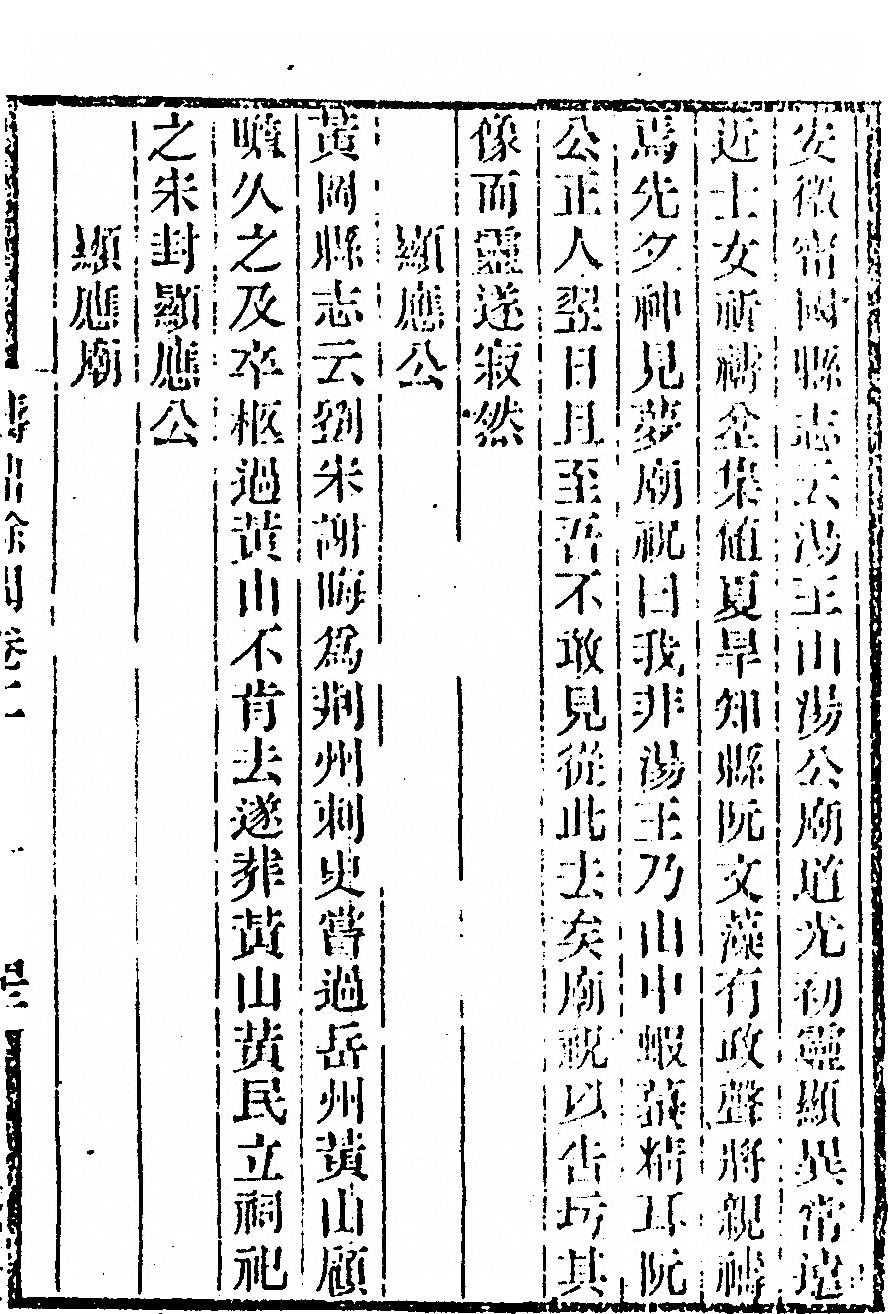 安徽甯國縣志云湯王山湯公廟道光初靈顯異常遠
近士女祈禱坌集値夏旱知縣阮文藻有政聲將親禱
焉先夕神見夢廟祝曰我非湯王乃山中蝦蟆精耳阮
公正人翌日且至吾不敢見從此去矣廟祝以告坊其
像而靈遂寂然
顯應公
黃岡縣志云劉宋謝晦爲荆州刺史嘗過岳州黃山顧
瞻久之及卒柩過黃山不肯去遂葬黃山黃民立祠祀
之宋封顯應公
顯應廟
餘聞卷二